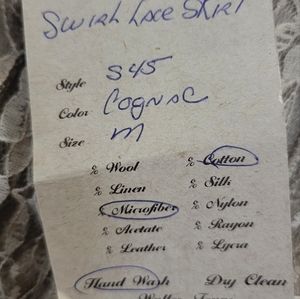 Swirl Lace Skirt
Style S45
Color Cognac
Size m
% Wool % Cotton
% Linen % Silk
% Microfiber % Nylon
% Acetate % Rayon
% Leather % Lycra
Hand Wash Dry Clean